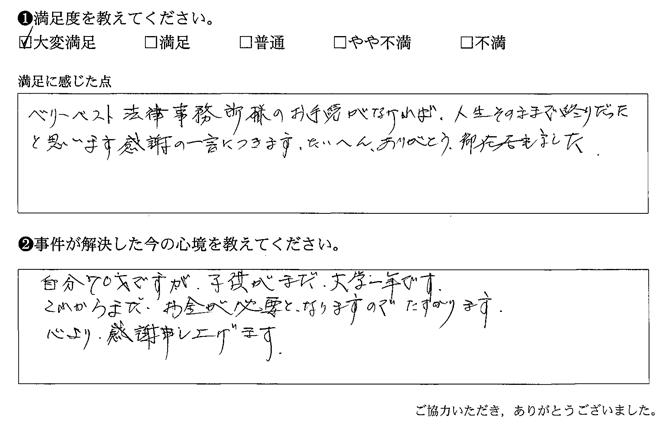 ❶満足度を教えてください。
☑大変満足 □満足 □普通 □やや不満 □不満
満足に感じた点
ベリーベスト法律事務所様のお手続がなければ、人生そのままで終りだった
と思います感謝の一言につきます、たいへん、ありがとう、ました
❷事件が解決した今の心境を教えてください。
自分70才ですが、子供がまだ、大学一年です、
これからまだ、お金が必要と、なりますのでたすかります、
心より、感謝申し上げます、
ご協力いただき、ありがとうございました。